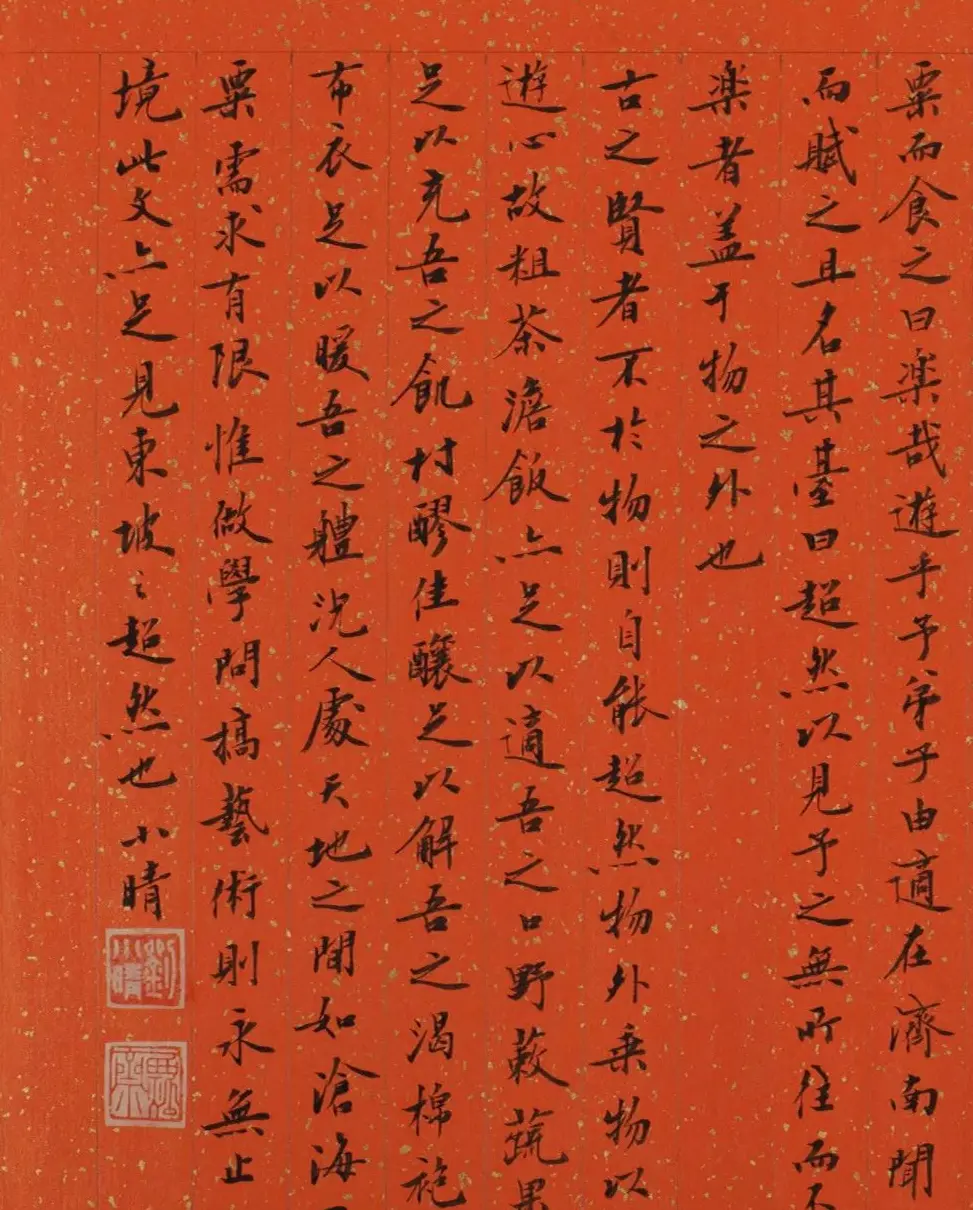 粟而食之曰楽哉遊乎予弟子由適在濟南聞
而賦之且名其臺曰超然以見予之無所往而不
楽者蓋于物之外也
古之賢者不於物則自能超然物外乗物以
遊心故粗茶澹飯亦足以適吾之口野蔌蔬果
足以充吾之飢村醪佳釀足以解吾之渴棉袍
布衣足以暖吾之體況人處天地之間如滄海
粟需求有限惟做學問搞藝術則永無止
境此文亦足見東坡之超然也小晴
劉小晴